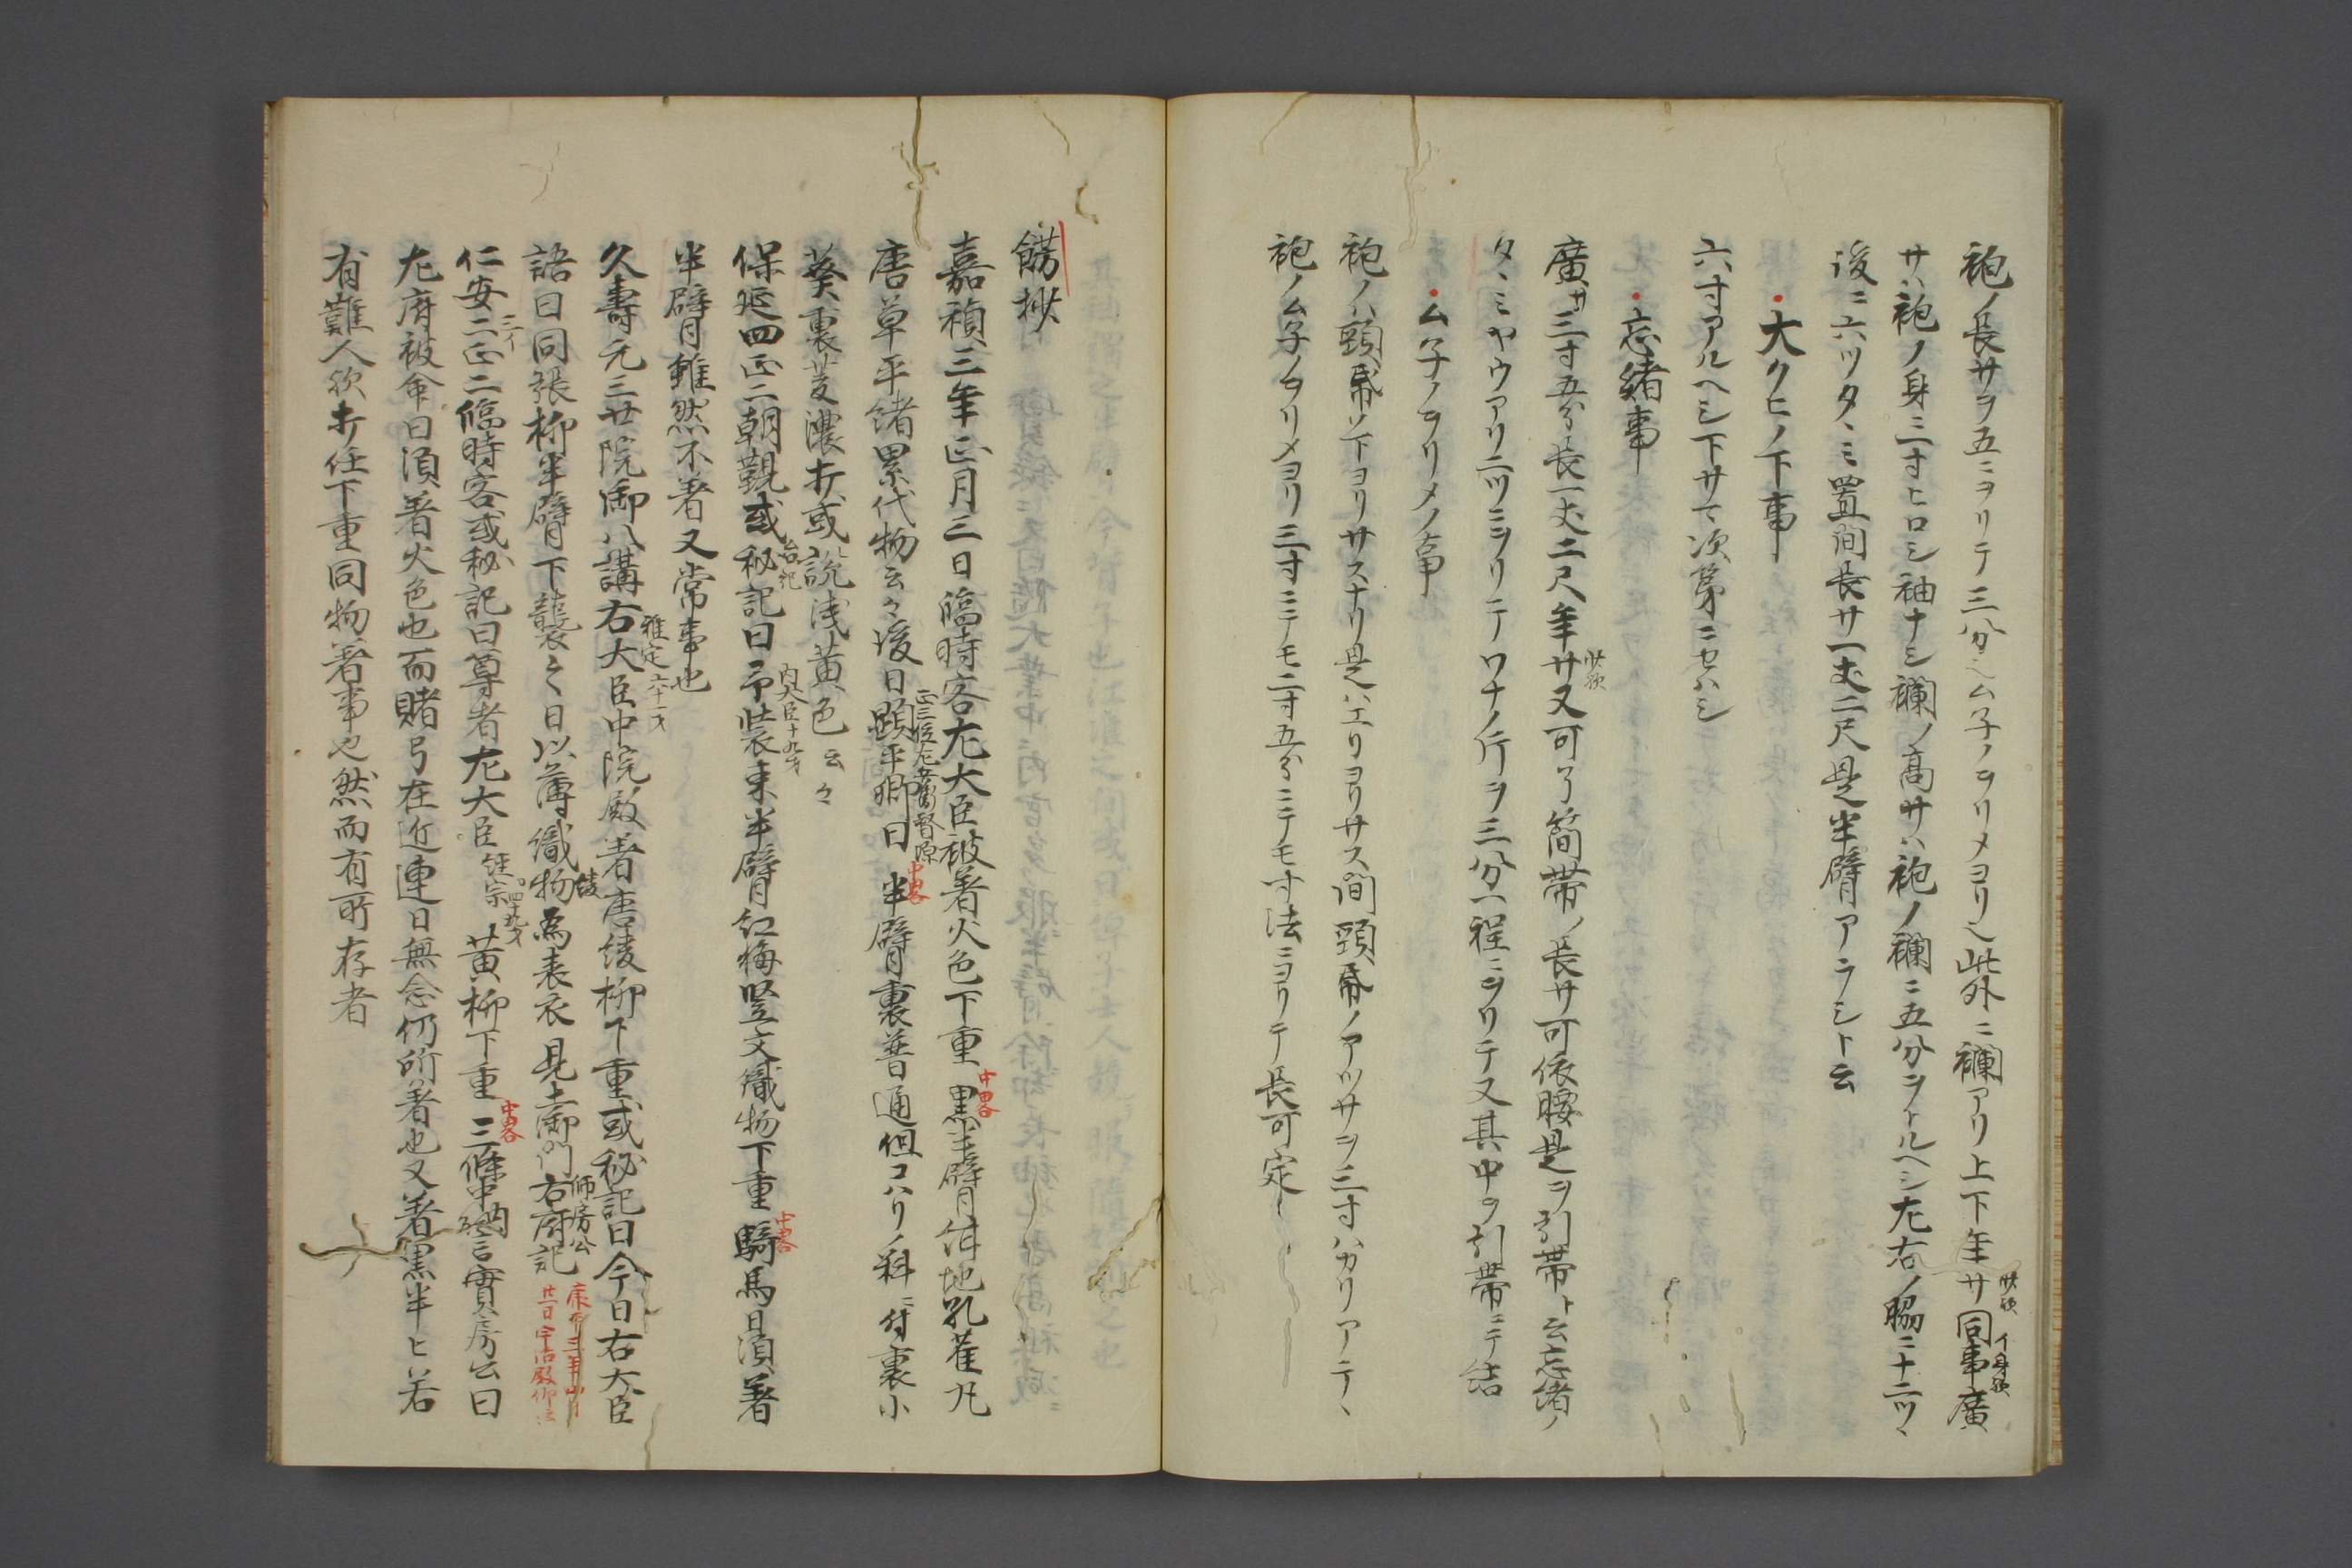 袍ノ長サヲ五ニヲリテ三分之ムネノヲリメヨリ之此外ニ襴アリ上下年サ同事廣
サハ袍ノ身三寸ヒロシ袖ナシ襴ノ高サハ袍ノ襴ニ五分ヲトルヘシ左右ノ脇ニ十二ツヽ
後ニ六ツタヽミ置間長サ一丈二尺是半臂アラシト云
大クヒノ下事
六寸アルヘシ下サマ次第ニセハシ
忘緒事
廣サ三寸五分長一丈二尺年サ又可了簡帯ノ長サ可依腰是ヲ引帯ト云忘緒ノ
タヽミヤウアリ二ツニヲリテワナノ行ヲ三分一程ニヲリテ又其中ヲ引帯ニテ結
ムネノヲリメノ事
袍ノハ頸ノ下ヨリサスナリ是ハエリヨリサス間頸ノアツサヲ三寸ハカリアテヽ
袍ノムネノヲリメヨリ三寸ニテモ二寸五分ニテモ寸法ニヨリテ長可定
餝抄
嘉禎三年正月三日臨時客左大臣被著火色下重 中略 黒半臂 地孔雀凡
唐草平緒累代物云々後日顕平卿曰 正三位左兵衛督源 中略 半臂裏普通但コハリノ料ニ付裏小
葵裏菱濃打或説浅黄色云々
保延四正二朝覲或秘記曰 台記 予装束 内大臣十九才 半臂紅梅竪文織物下重 中略 騎馬日須著
半臂雖然不著又常事也
久壽元三廿院御八講右大臣 雅定六十一才 中院殿著唐綾柳下重或秘記曰今日右大臣
語曰同張柳半臂下襲之日以薄織物 綾 為表衣見土御門右府記 師房公
仁安二正二臨時客或秘記曰尊者左大臣 経宗四十九才 黄柳下重 中略 三條中納言實房云曰
左府被命曰須著火色也而賭弓在近連日無念仍所著也又著黒半ヒ若
有難人欤打任下重同物著事也然而有所存者